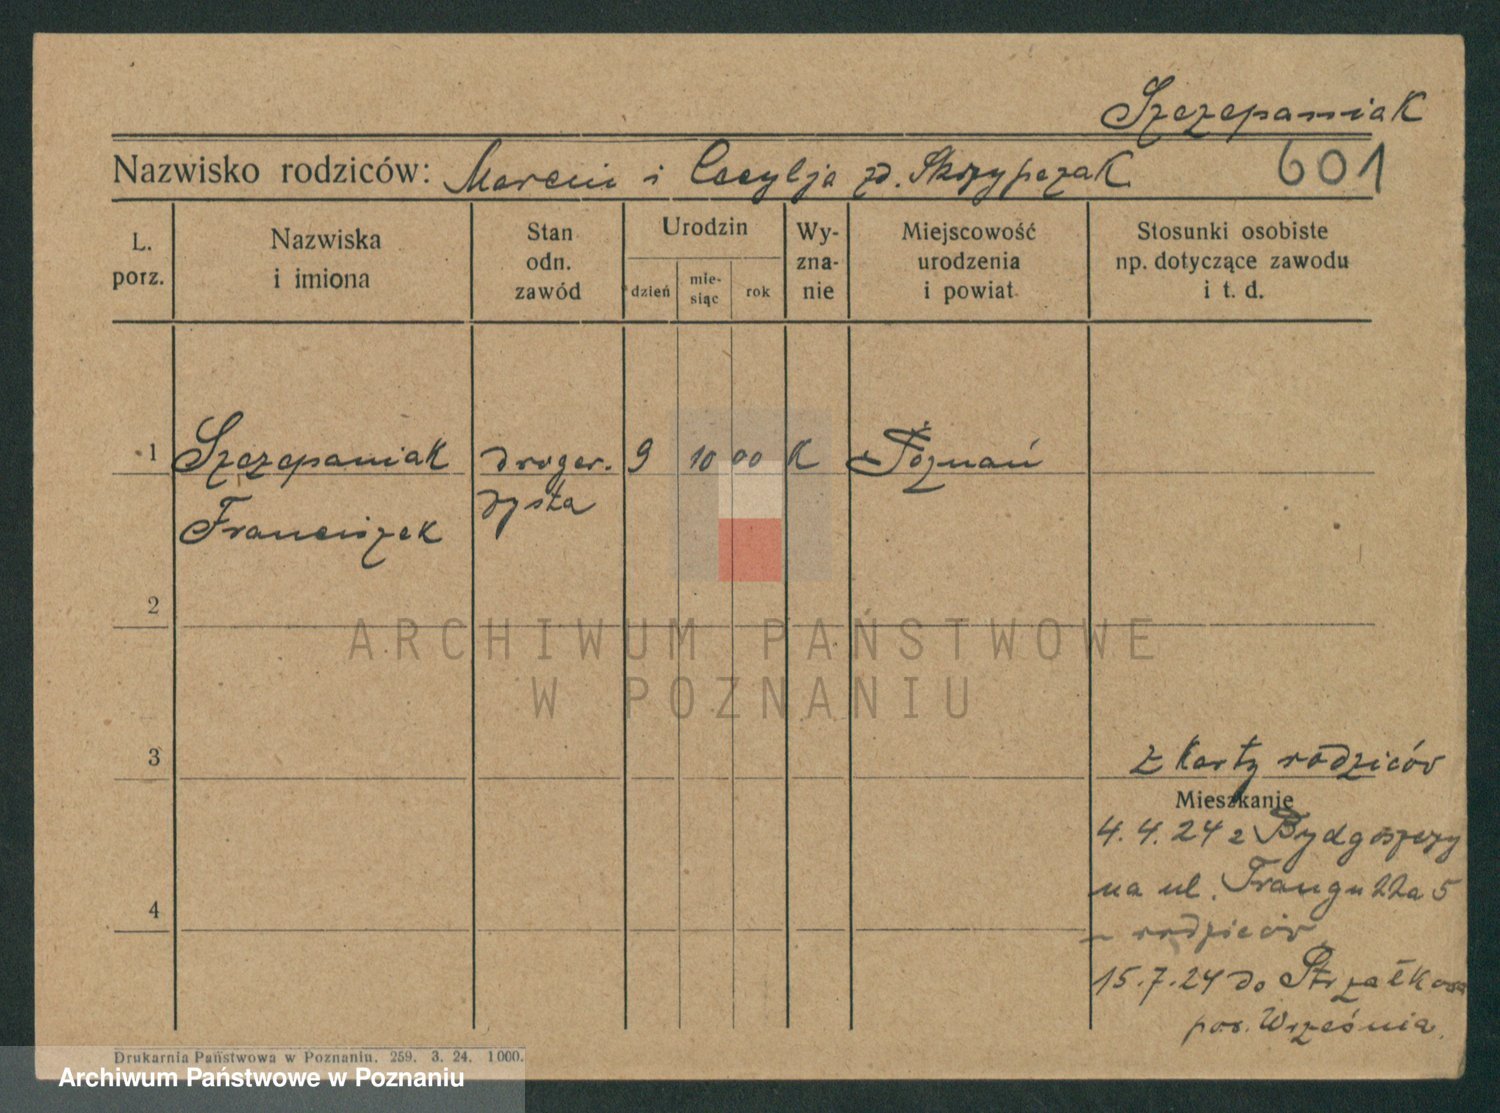 Szczepaniak
Nazwisko rodziców: Marcin i Cecylja zd. Skrzypczak 601
L. porz.
Nazwiska i imiona
Stan odn. zawód
Urodzin
dzień
mie-siąc
rok
Wy-zna-nie
Miejscowość urodzenia i powiat
Stosunki osobiste np. dotyczące zawodu i t. d.
1 Szczepaniak droger. 9 10 00 K Poznań
Franciszek
zysta
2
3
z Karty rodziców
Mieszkanie
4. 4. 24 z Bydgoszczy
na ul. 5
4
rodziców
15. 7. 24 do Strzałkowa
pow. Września.
Drukarnia Państwowa w Poznaniu. 259. 3. 24. 1000.
ARCHIWUM PAŃSTWOWE
W POZNANIU
Archiwum Państwowe w Poznaniu